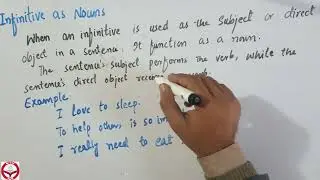 Infinitive as Nouns
When an infinitive is used as the subject or direct
object in a sentence, It function as a noun.
The sentence's subject performs the verb, while the
sentence's direct object rece verb.
Example.
I love to sleep.
To help others is so im
I really need to eat